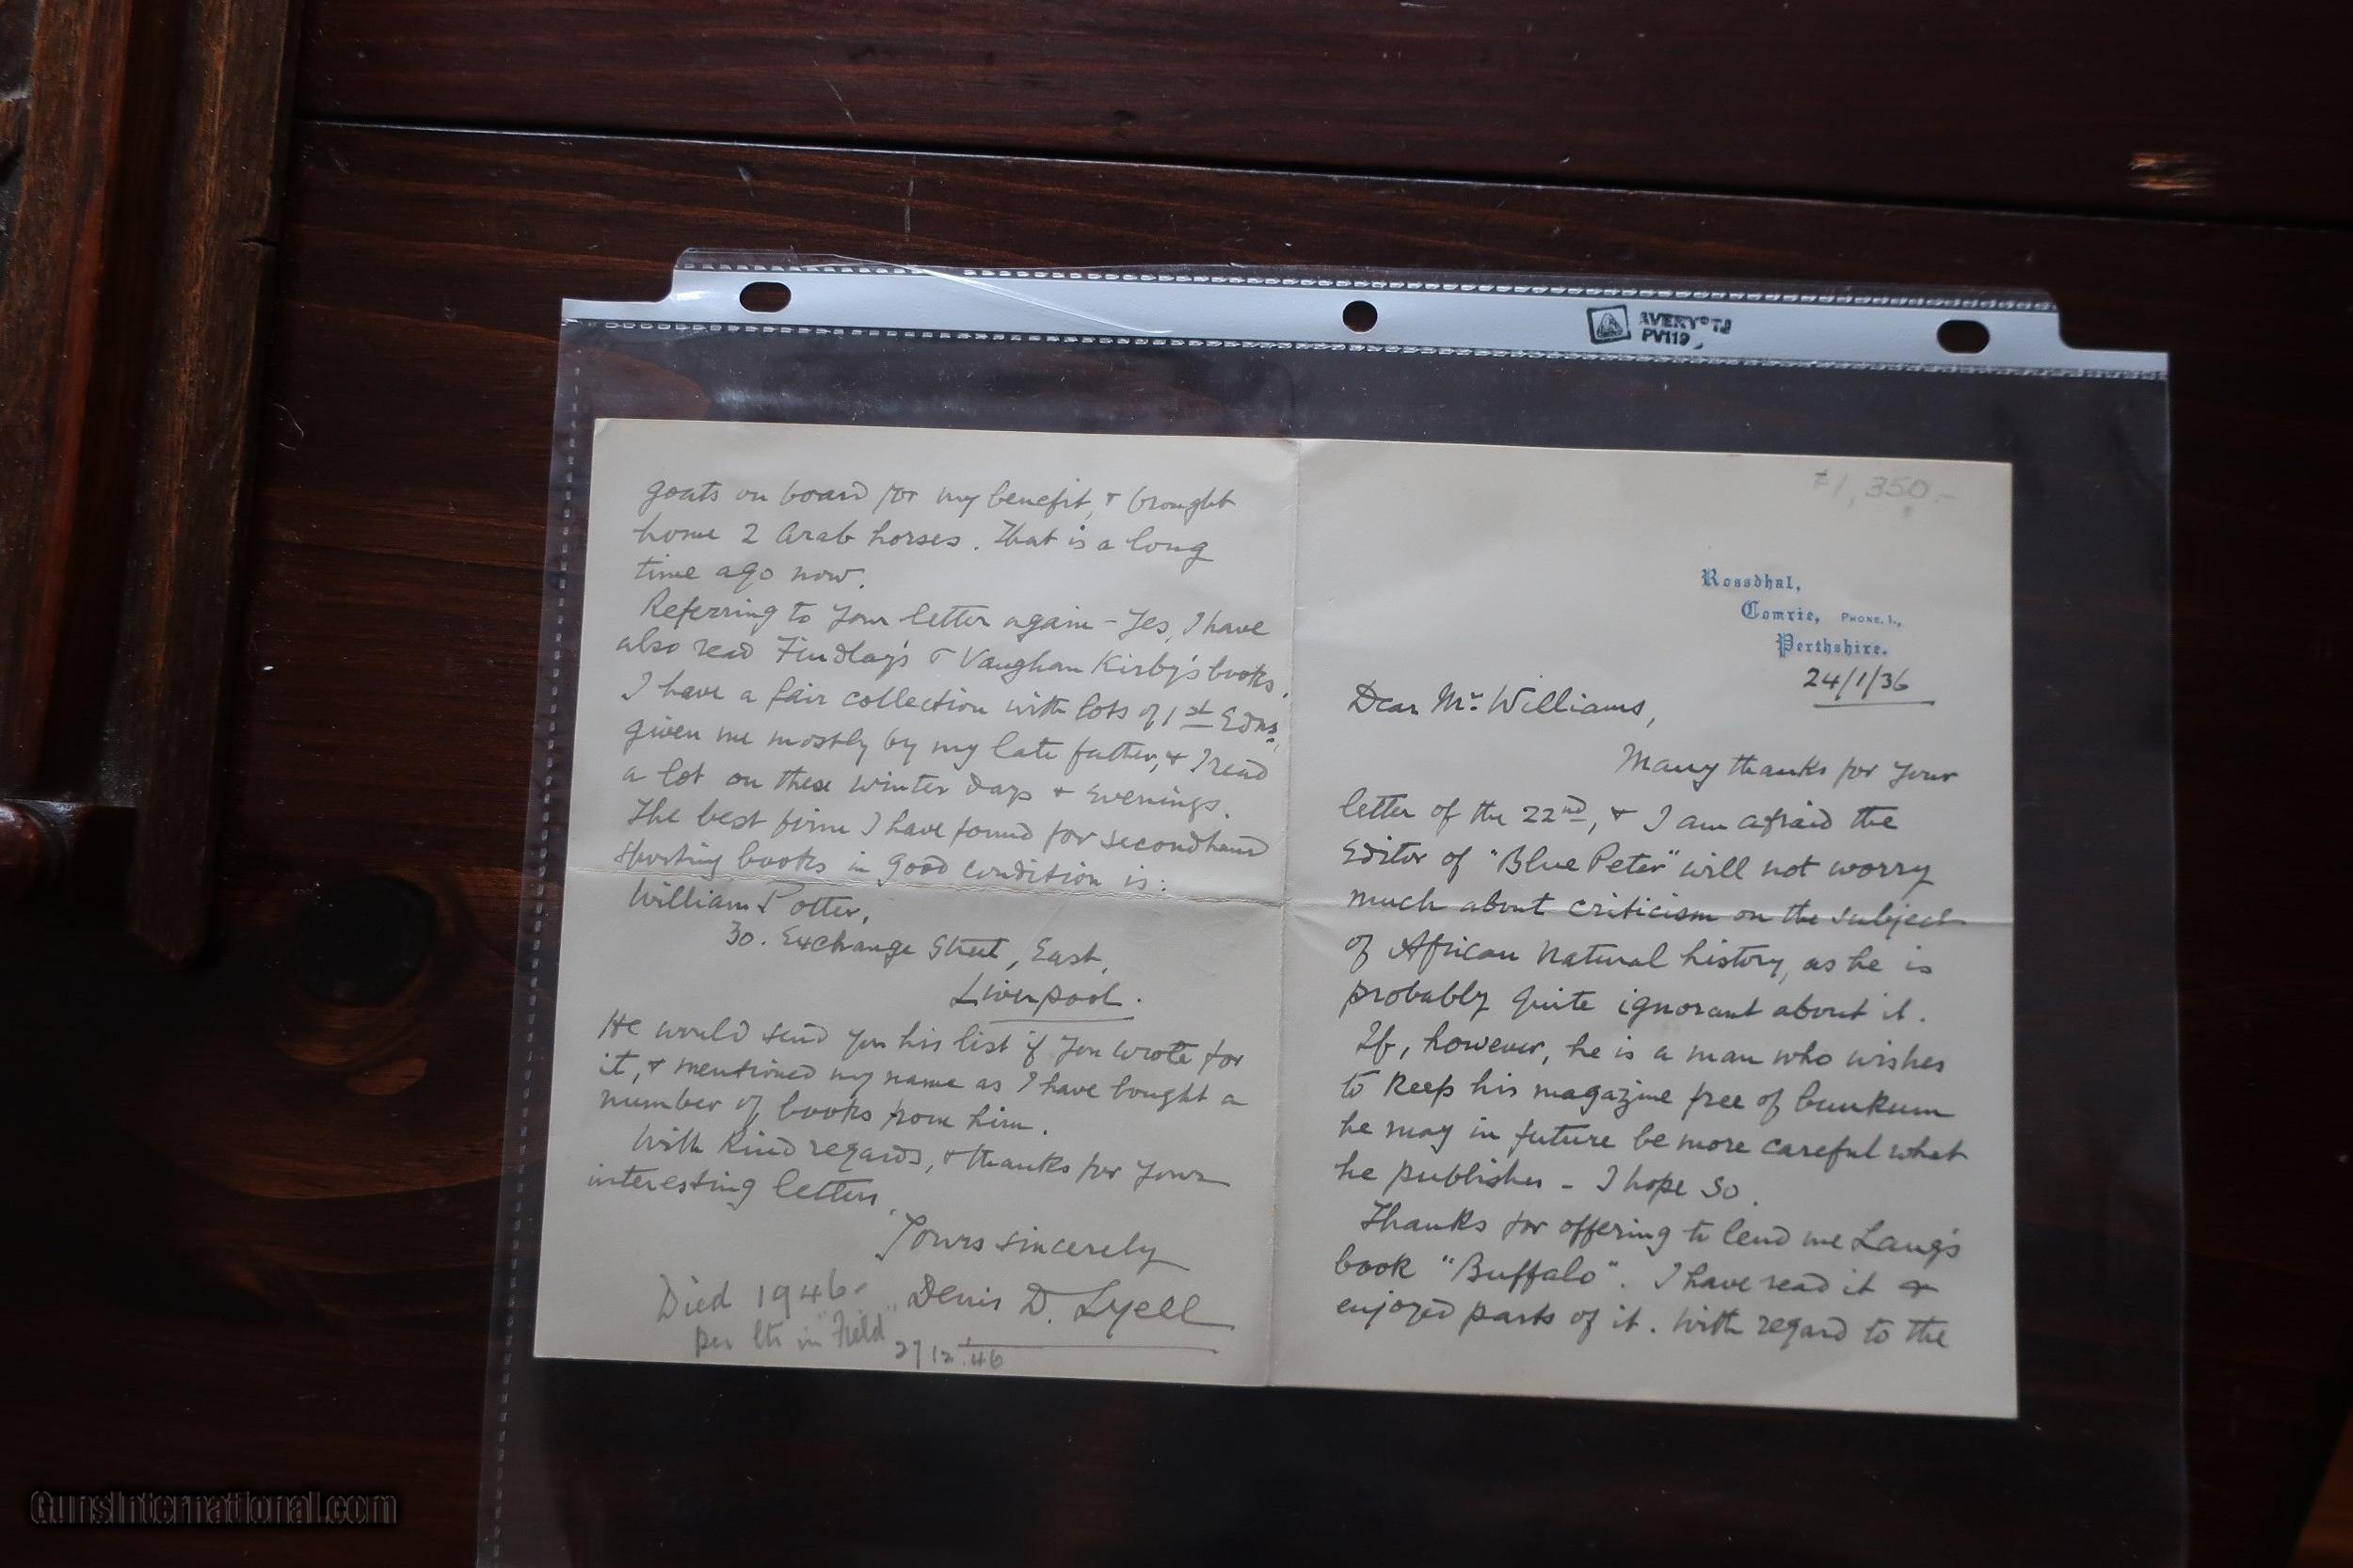 AVERY® TJ
PV119
$1,350.-
Rossdhal,
Comrie, PHONE. 1.,
Perthshire.
24/1/36
Dear Mr. Williams,
Many thanks for your
letter of the 22nd, & I am afraid the
Editor of "Blue Peter" will not worry
much about criticism on the subject
of African Natural history, as he is
probably quite ignorant about it.
If, however, he is a man who wishes
to keep his magazine free of bunkum
he may in future be more careful what
he publishes - I hope so.
Thanks for offering to lend me Lang's
book "Buffalo". I have read it &
enjoyed parts of it. With regard to the
goats on board for my benefit, & brought
home 2 Arab horses. That is a long
time ago now.
Referring to your letter again - Yes, I have
also read Findlay's & Vaughan Kirby's books.
I have a fair collection with lots of 1st Edns,
given me mostly by my late father, & I read
a lot on these winter days & evenings.
The best firm I have found for secondhand
sporting books in good condition is:
William Potter,
30. Exchange Street, East,
Liverpool.
He would send you his list if you wrote for
it, & mentioned my name as I have bought a
number of books from him.
With kind regards, & thanks for your
interesting letters.
Yours sincerely
Denis D. Lyell
Died 1946
per ltr in "Field"
27 12.46
GunsInternational.com